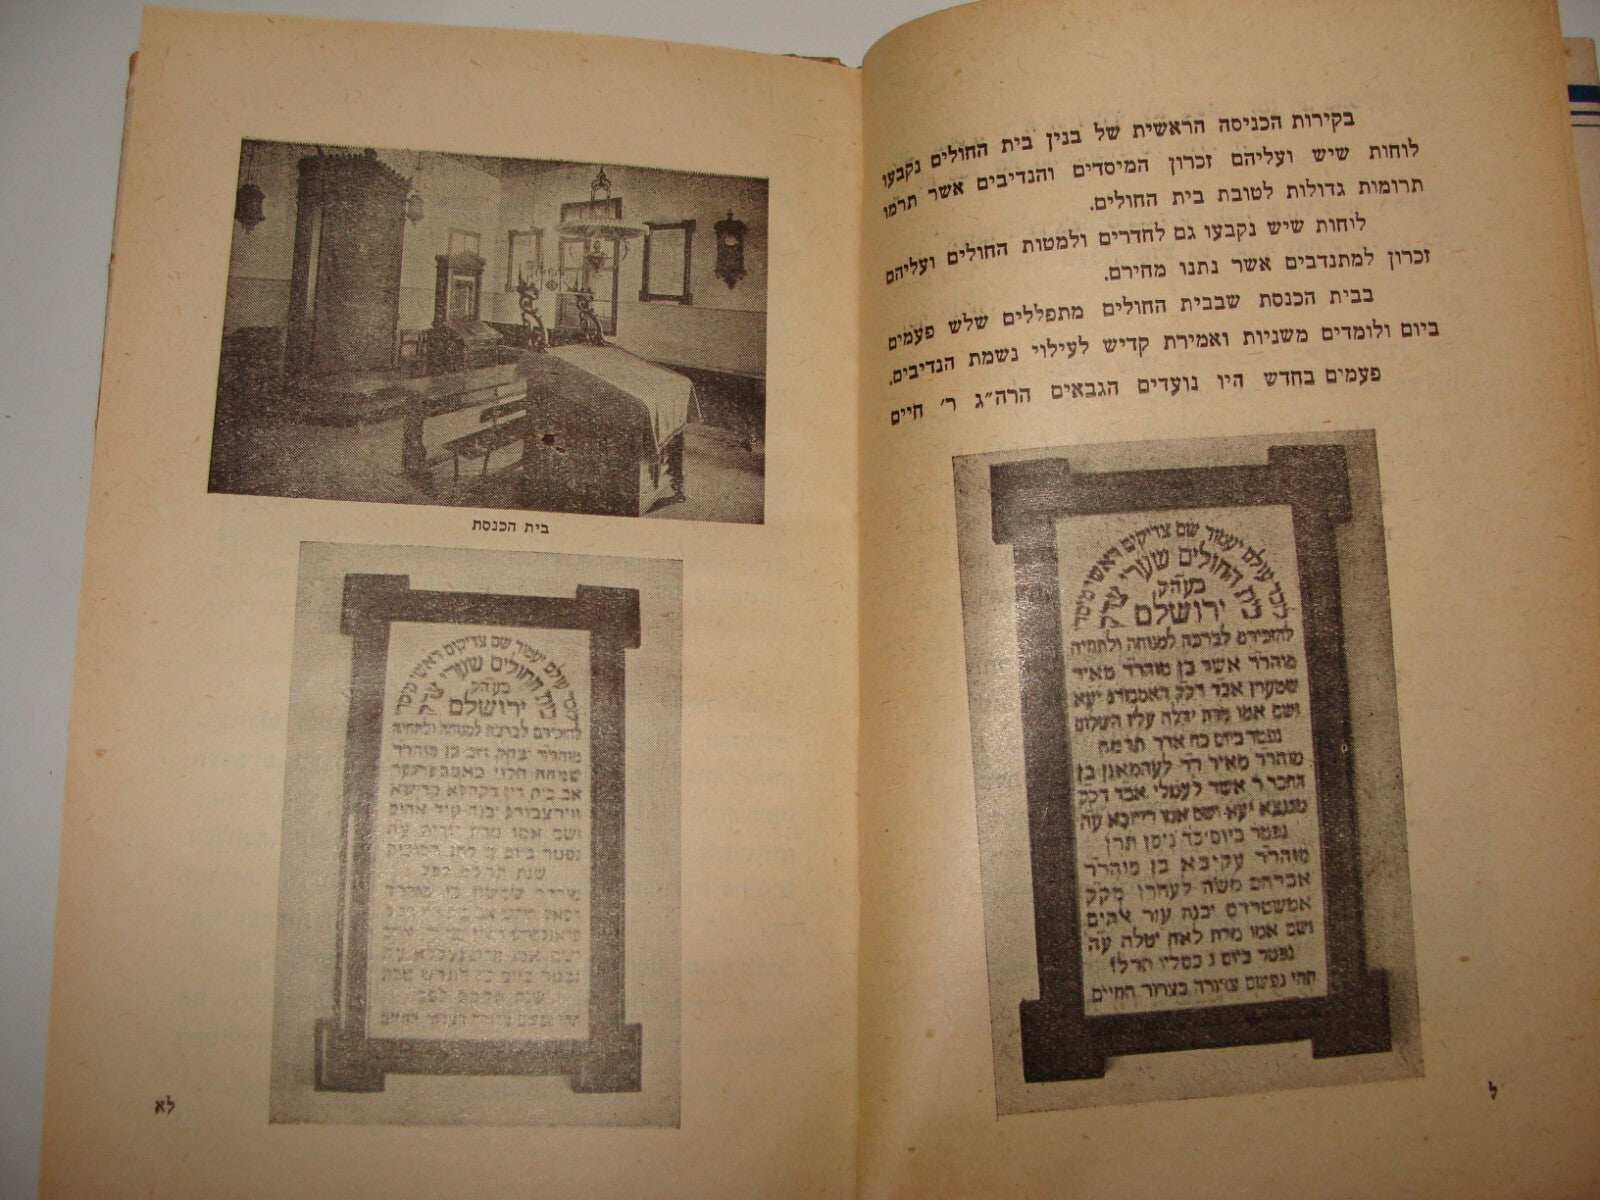 בקירות הכניסה הראשית של בנין בית החולים נקבעו
לוחות שיש ועליהם זכרון המיסדים והנדיבים אשר תרמו
תרומות גדולות לטובת בית החולים.
לוחות שיש נקבעו גם לחדרים ולמטות החולים ועליהם
זכרון למתנדבים אשר נתנו מחירם.
בבית הכנסת שבבית החולים מתפללים שלש פעמים
ביום ולומדים משניות ואמירת קדיש לעילוי נשמת הנדיבים.
פעמים בחדש היו נועדים הגבאים הרה״ג ר׳ חיים
לזכר עולם יעמוד שם צדיקים ראשי מיסדי
בית החולים שערי צדק
בעה״ק
ירושלם
להזכירם לברכה למנוחה ולתחיה
מוהר״ר אשר בן מוהר״ר מאיר
ושם אמו מרת יטלה עליו השלום
נפטר ביום כח אדר תרמח
מוהר״ר מאיר ר״ד לעהמאנן בן
נפטר ביום כד ניסן תרן
מוהר״ר עקיבא בן מוהר״ר
אברהם משה לעהרן מק״ק
אמשטרדם יבנה עיר אלהים
ושם אמו מרת לאה יטלה ע״ה
נפטר ביום ג כסליו תרל״ז
תהי נפשם צרורה בצרור החיים
ל
בית הכנסת
לזכר עולם יעמוד שם צדיקים ראשי מיסדי
בית החולים שערי צדק
בעה״ק
ירושלם
להזכירם לברכה למנוחה ולתחיה
מוהר״ר יצחק דוב בן מוהר״ר
שמחה הלוי באמבערגער
אב בית דין דקהלא קדישא
ווירצבורג יבנה עיר אלהים
לא